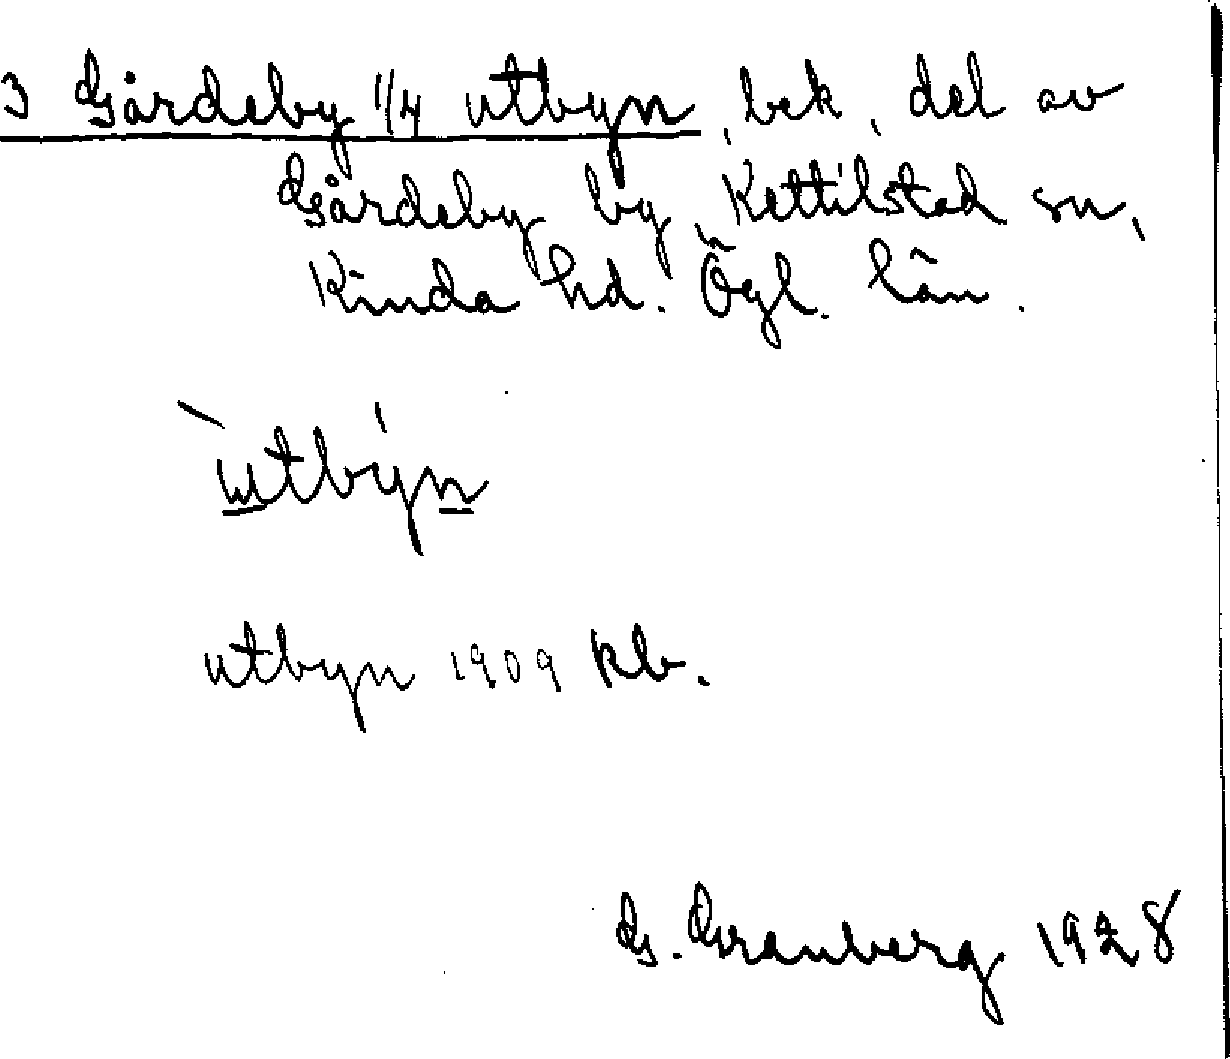 3 Gårdeby 1/4 utbyn, bek, del av
Gårdeby by, Kettilstad sn,
Kinda hd. Ögl. län.
`utby´n
utbyn 1909 kb.
G. Granberg 1928